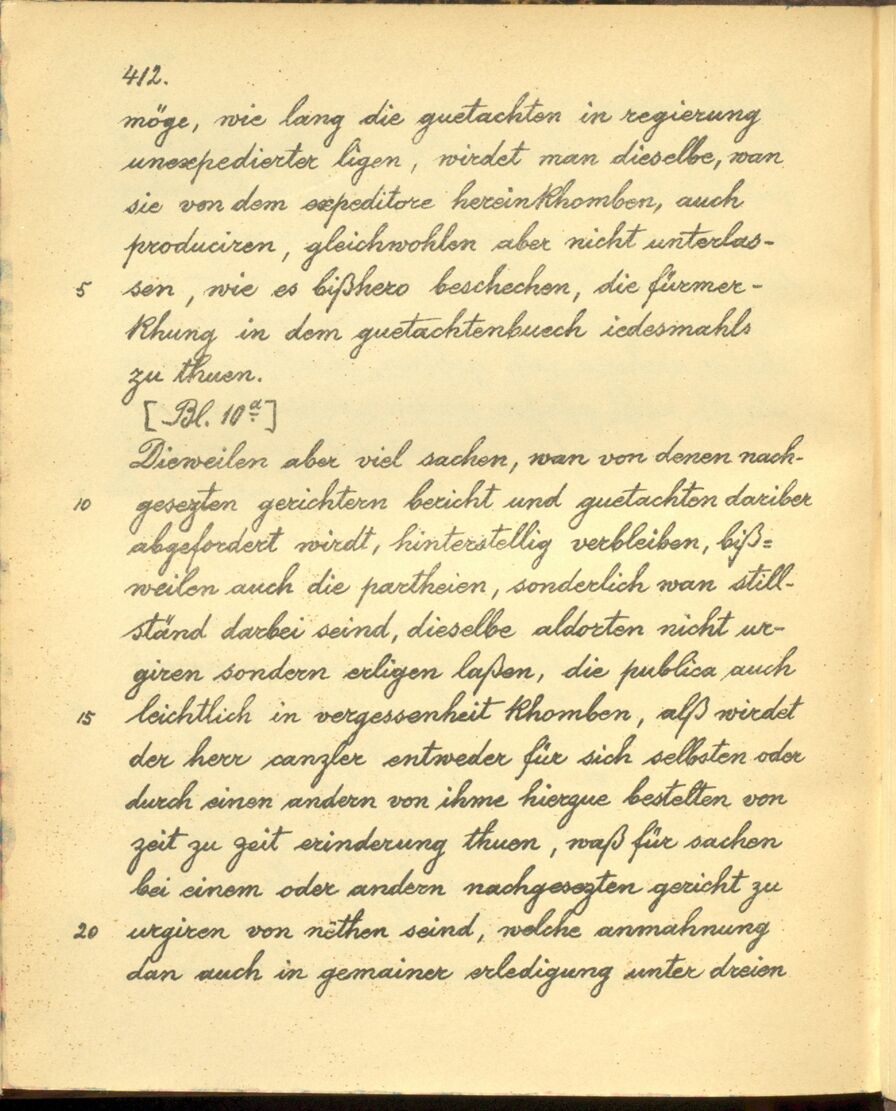 412.
möge, wie lang die guetachten in regierung
unexpedierter ligen, wirdet man dieselbe, wan
sie von dem expeditore hereinkhomben, auch
produciren, gleichwohlen aber nicht unterlas-
5 sen, wie es bißhero beschechen, die fürmer-
khung in dem guetachtenbuech iedesmahls
zu thuen.
[Bl. 10a]
Dieweilen aber viel sachen, wan von denen nach-
10 gesezten gerichtern bericht und guetachten dariber
abgefordert wirdt, hinterstellig verbleiben, biß=
weilen auch die partheien, sonderlich wan still-
ständ darbei seind, dieselbe aldorten nicht ur-
giren sondern erligen laßen, die publica auch
15 leichtlich in vergessenheit khomben, alß wirdet
der herr canzler entweder für sich selbsten oder
durch einen andern von ihme hierzue bestelten von
zeit zu zeit erinderung thuen, waß für sachen
bei einem oder andern nachgesezten gericht zu
20 urgiren von nöthen seind, welche anmahnung
dan auch in gemainer erledigung unter dreien